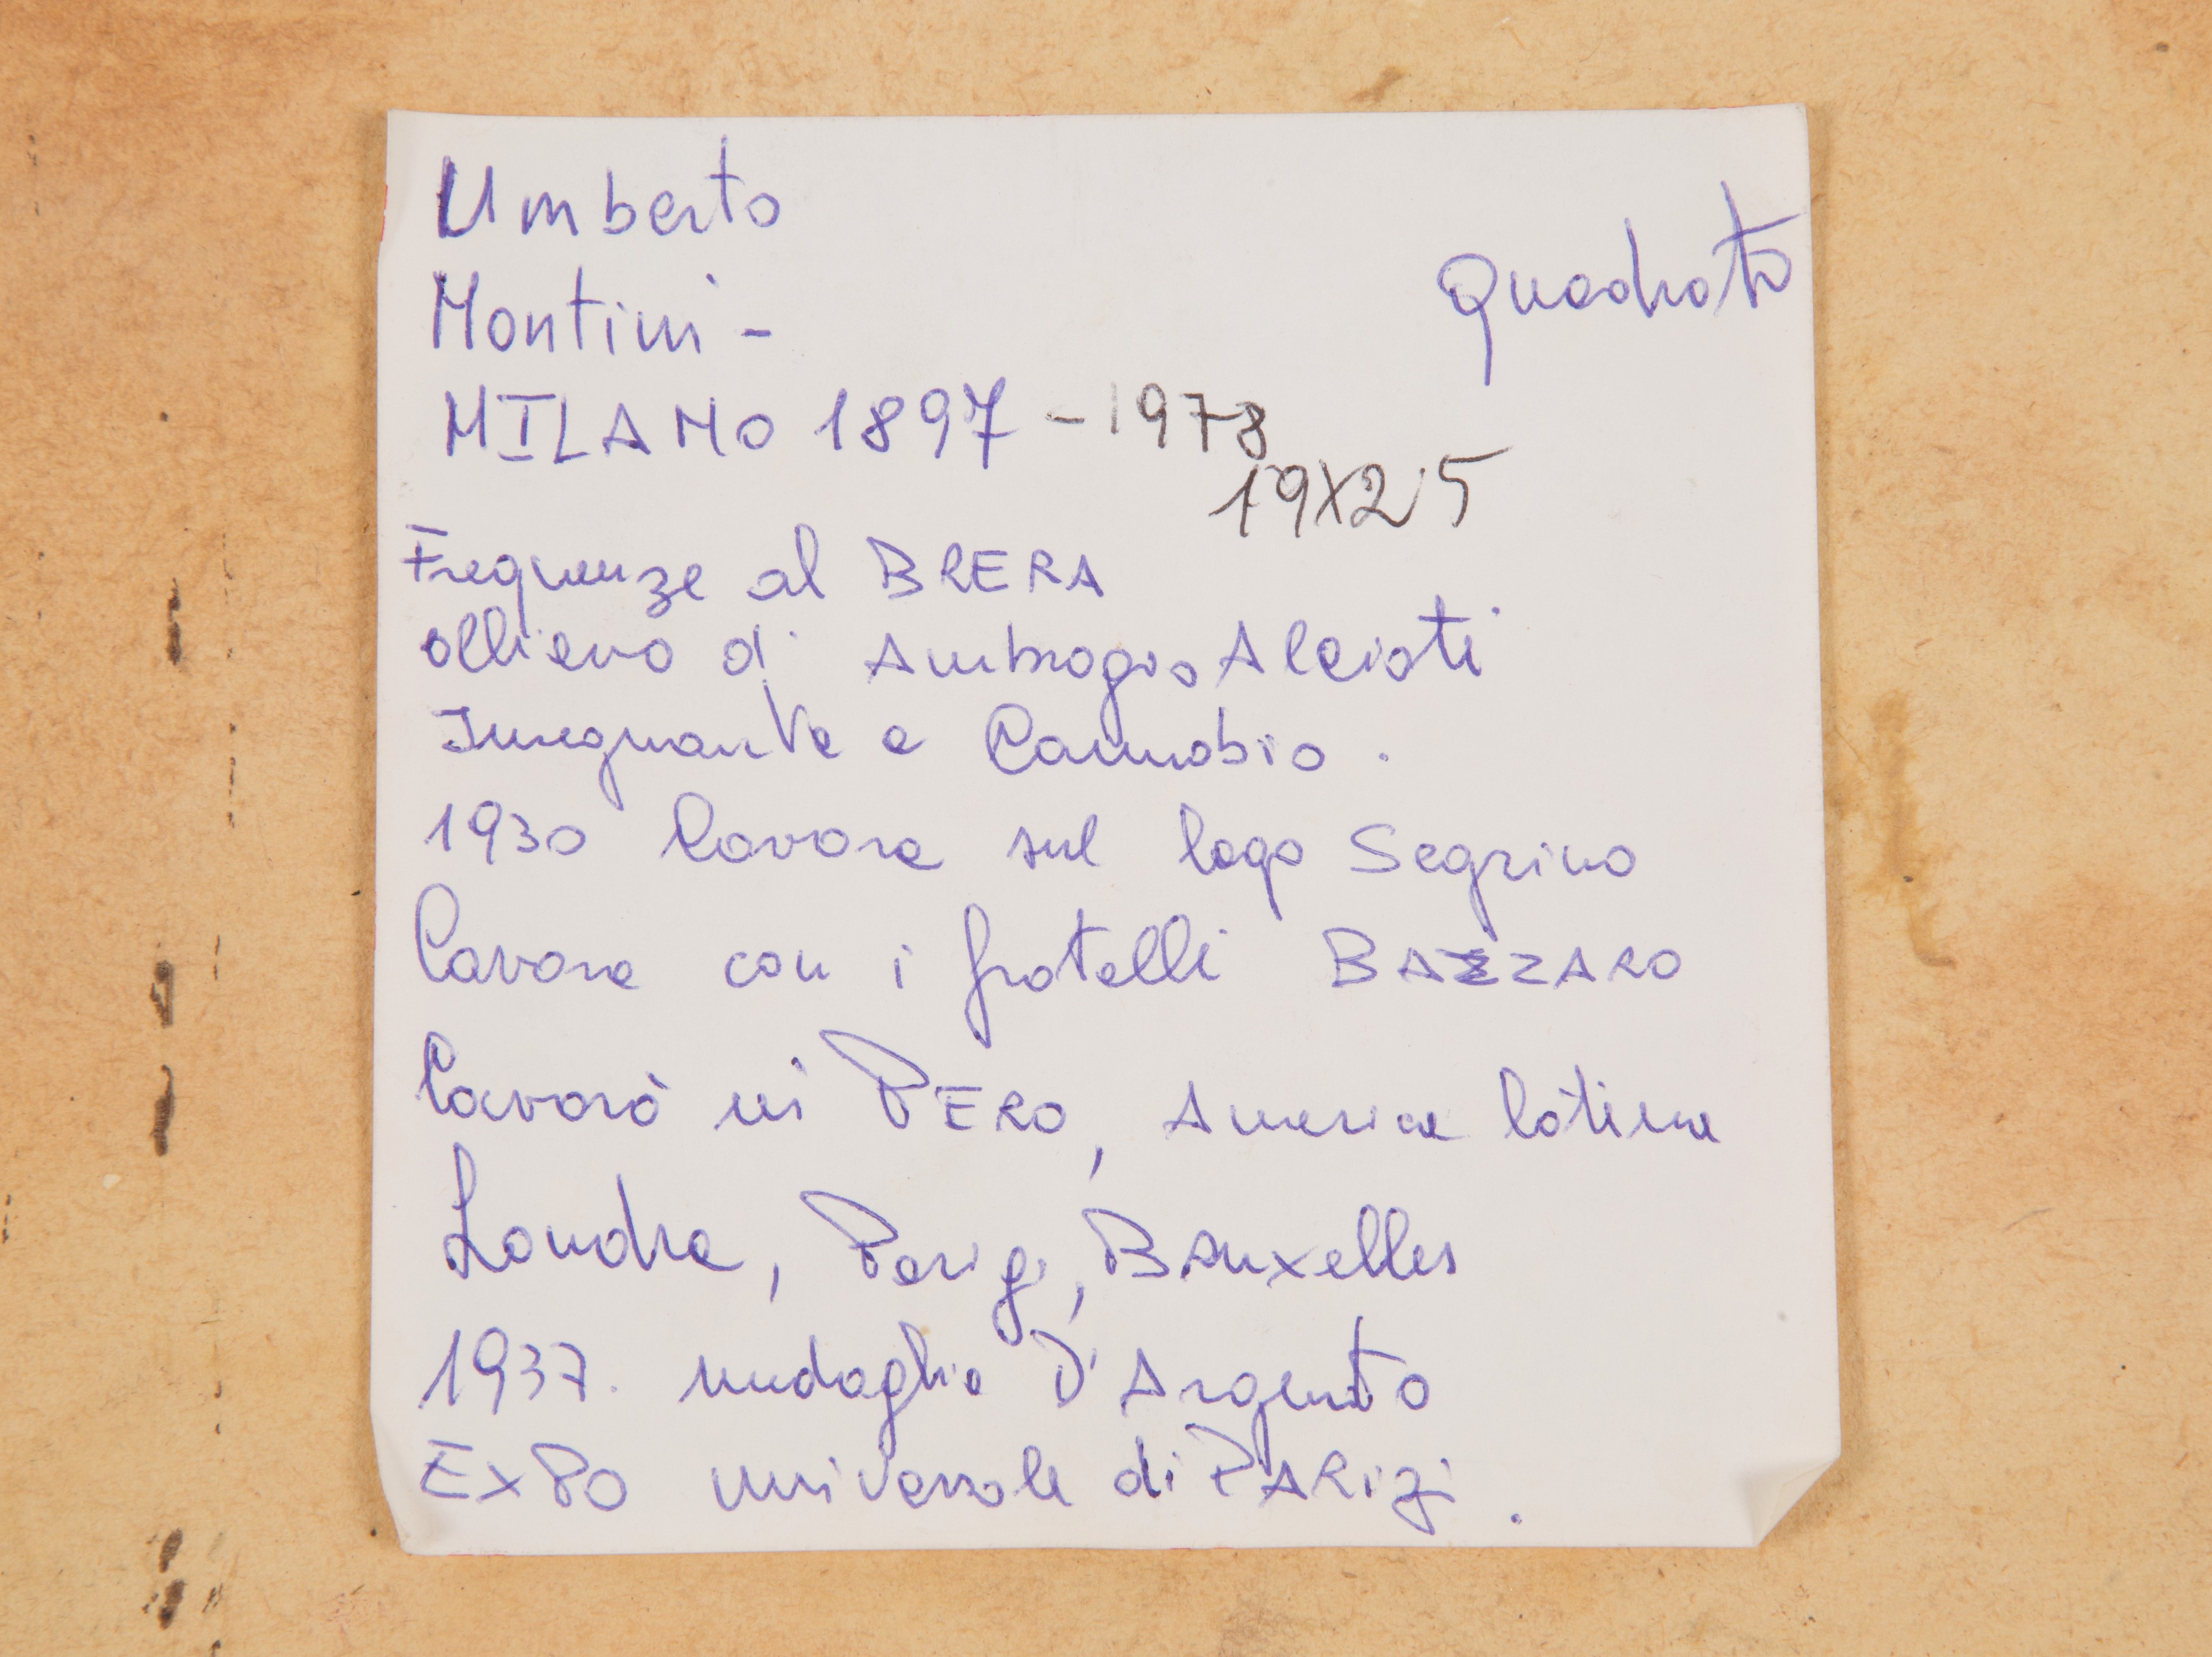 Umberto
Quadrato
Montini -
MILANO 1897 - 1978
19X25
Frequenza al BRERA
allievo di Ambrogio Alciati
Insegnante a Cannobio.
1930 lavora sul lago Segrino
lavora con i fratelli BAZZARO
lavorò in PERO, America latina
Londra, Parigi, Bruxelles
1937. medaglia d'Argento
EXPO universale di PARIGI.